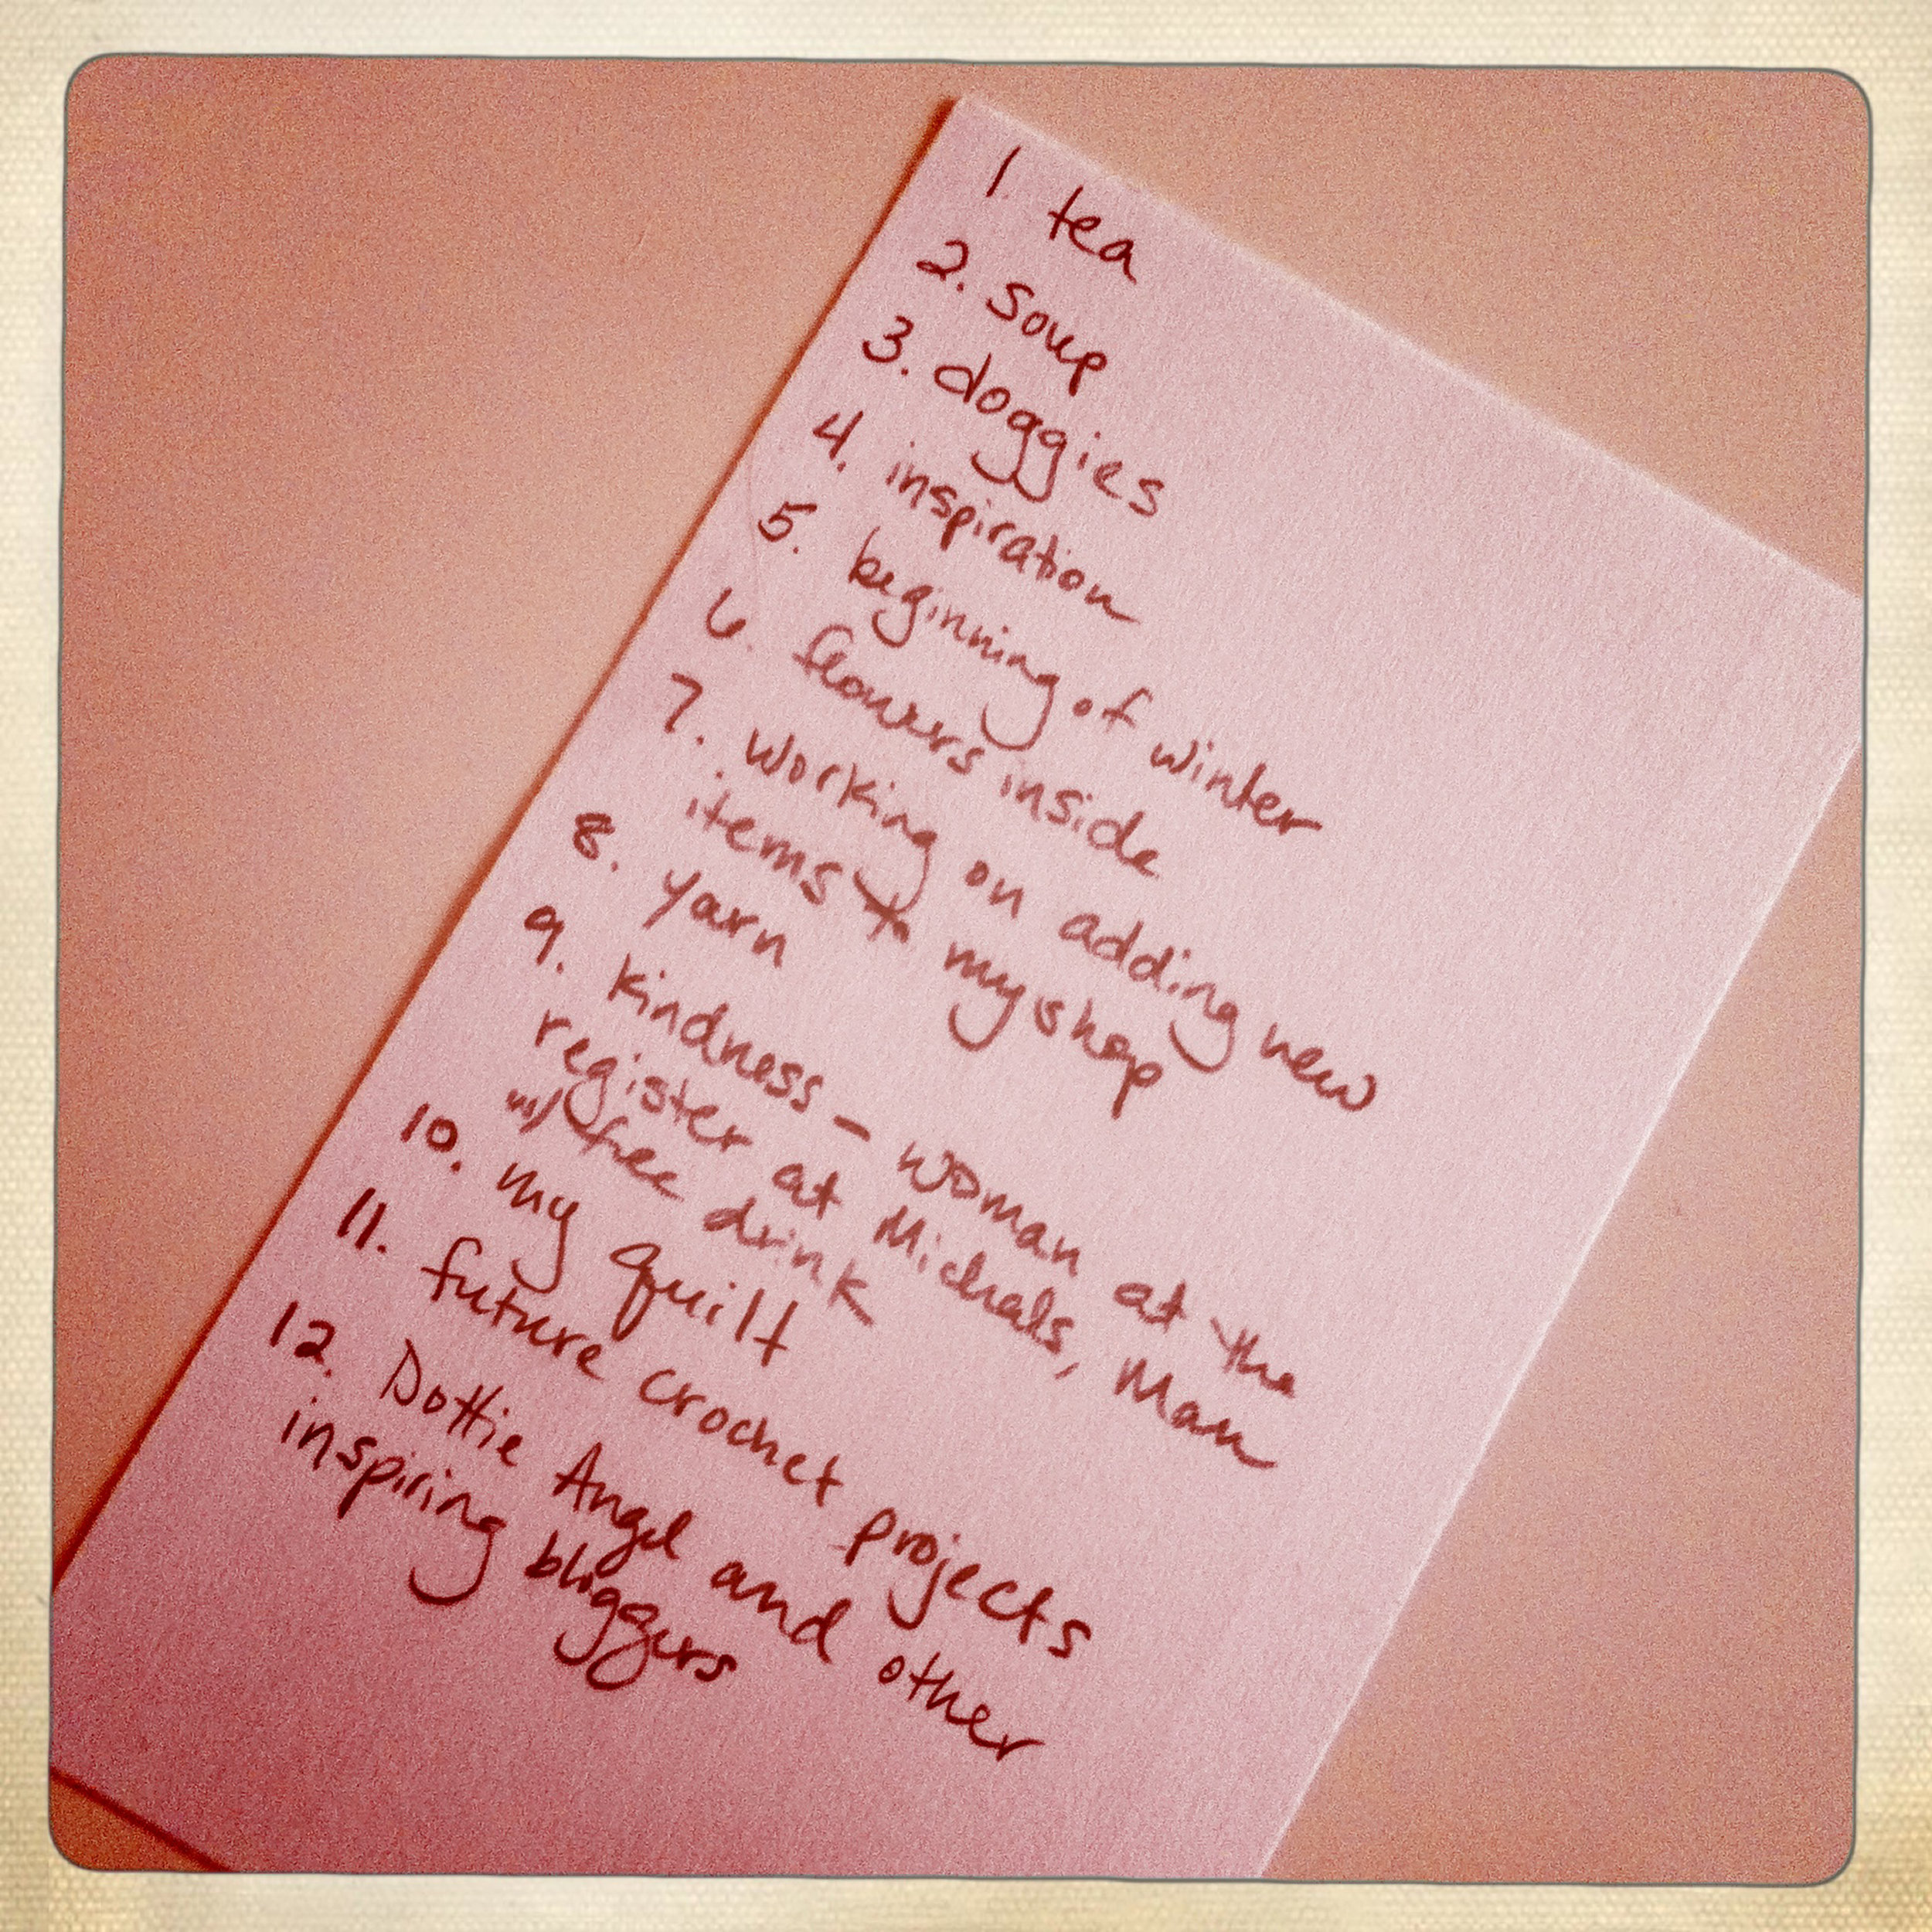 1. tea
2. soup
3. doggies
4. inspiration
5. beginning of winter
6. flowers inside
7. working on adding new
items to my shop
8. yarn
9. kindness - woman at the
register at Michaels, Man
w/ free drink
10. my quilt
11. future crochet projects
12. Dottie Angel and other
inspiring bloggers